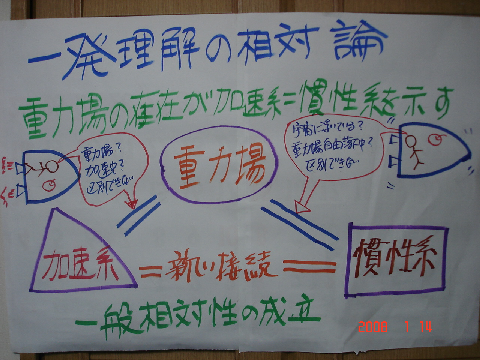 一発理解の相対論
重力場の存在が加速系=慣性系を示す
重力場?
加速中?
区別できない
重力場
宇宙に浮いてる?
重力場自由落下中?
区別できない
加速系
=新しい接続=
慣性系
一般相対性の成立
2008 1 14